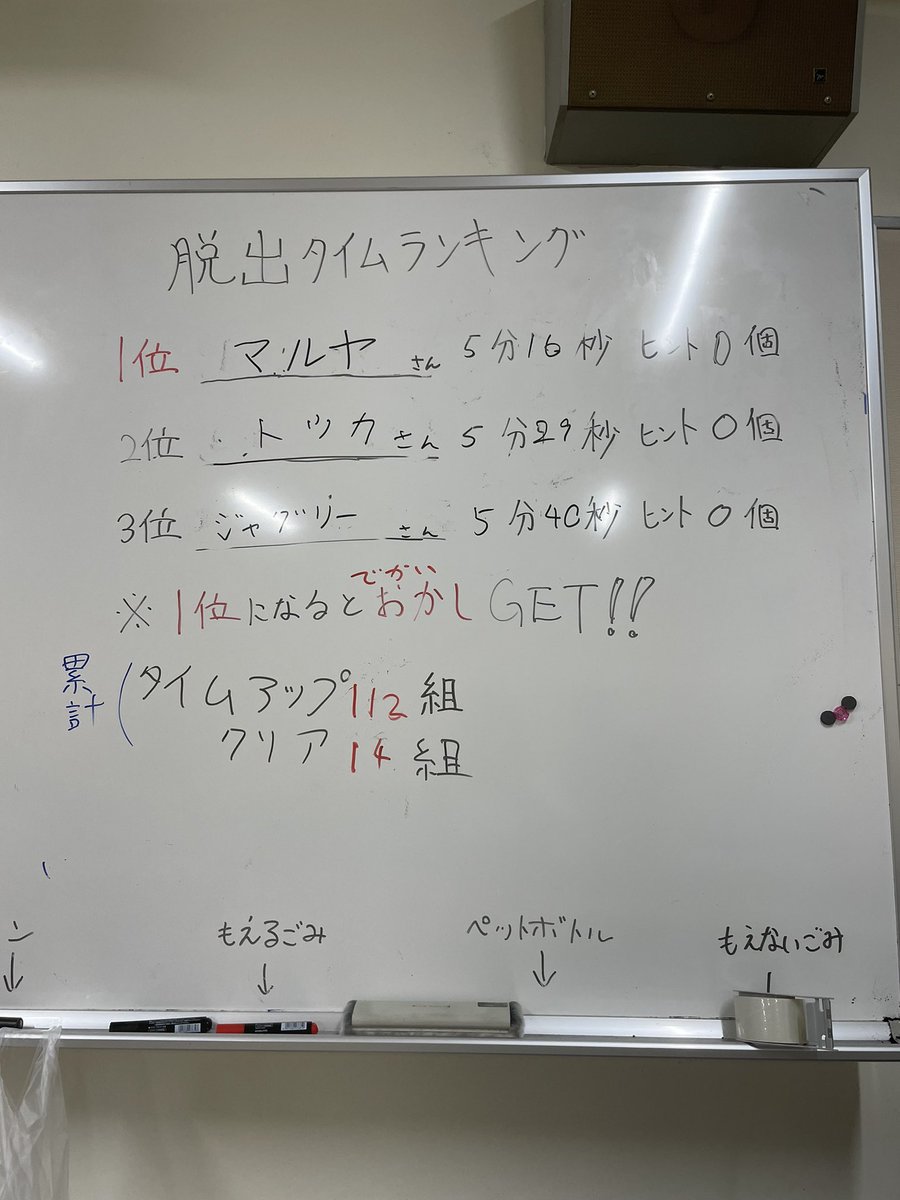 脱出タイムランキング
1位 マルヤさん 5分16秒 ヒント0個
2位 トツカさん 5分29秒 ヒント0個
3位 ジャグリーさん 5分40秒 ヒント0個
でかい
※1位になるとおかしGET!!
累計
タイムアップ112組
クリア14組
ン
↓
もえるごみ
↓
ペットボトル
↓
もえないごみ